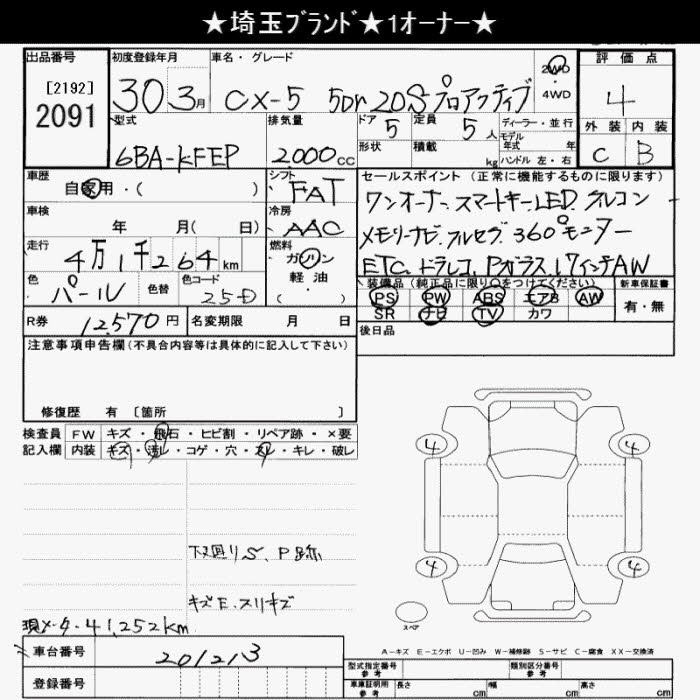 ★埼玉ﾌﾞﾗﾝﾄﾞ★1オーナー★
出品番号 初度登録年月 車名・グレード 2WD・4WD 評価点
[2192]
2091
30 3月 CX-5 5Dr 20Sプロアクティブ 4
型式 排気量 ドア 5 定員 5人 ディーラー・並行 外装 内装
形状 積載 kg モデル年式 年式
ハンドル 左・右
6BA-KFEP 2000cc C B
車歴 自家用・( ) シフト FAT セールスポイント(正常に機能するものに限ります)
ワンオーナー、スマートキー、LED、クルコン
車検 年 月( 日) 冷房 AAC
メモリーナビ、フルセグ、360°モニター
走行 4万1千264km 燃料 ガソリン・軽油・( )
ETC、ドラレコ、Pガラス、17インチAW
色 パール 色替 色コード 25D
装備品(純正品に限り○をつけてください) 新車保証書
PS PW ABS エアB AW 有・無
SR ナビ TV カワ
R券 12,570円 名変期限 月 日
後日品
注意事項申告欄(不具合内容等は具体的に記入して下さい)
修復歴 有 [箇所 ]
検査員 FW キズ・飛石・ヒビ割・リペア跡・×要
記入欄 内装 キズ・汚レ・コゲ・穴・スレ・キレ・破レ
4 4
4 4
下廻りS、P跡
キズE、スリキズ
スペア
現メータ 41,252km
A－キズ E－エクボ U－凹み W－補修跡 S－サビ C－腐食 XX－交換済
車台番号 201213
型式指定番号 参考 類別区分番号 参考
登録番号
車庫証明用 参考 長さ cm 幅 cm 高さ cm